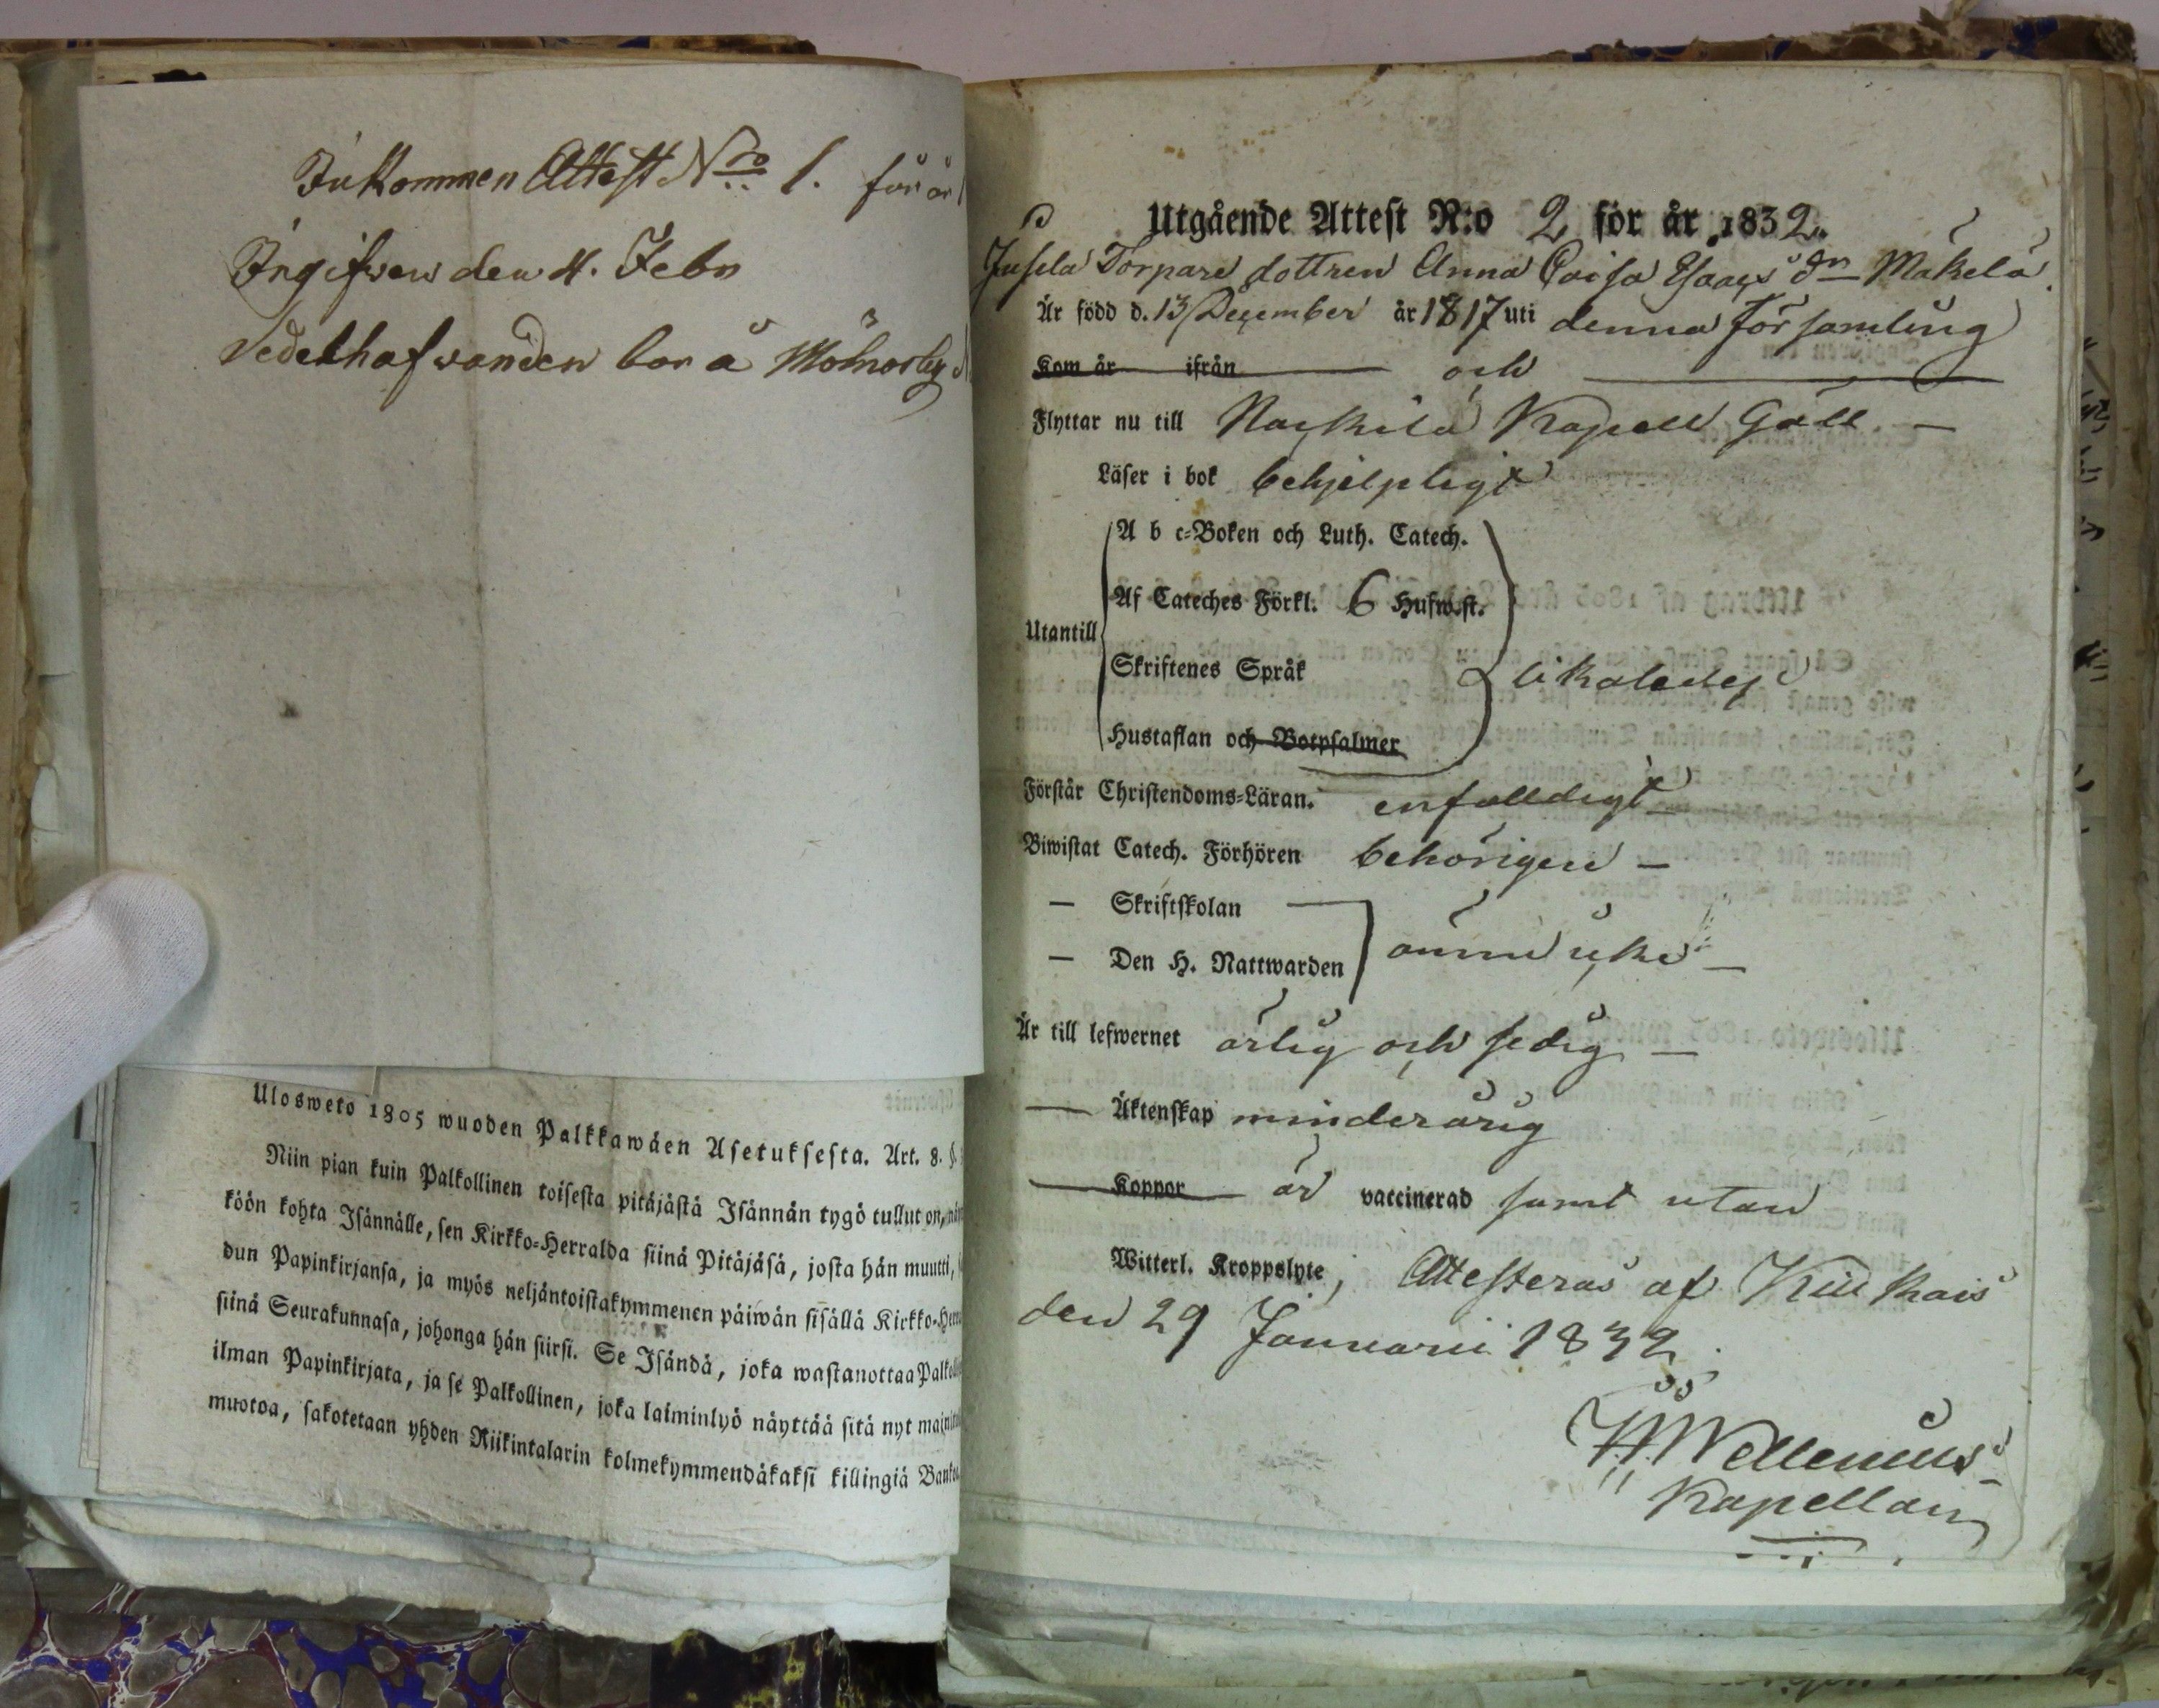 Inkommen Attest Nro 1. för år
Ingifwen den 4. Febr
Vederhafwanden bor å
Ulosweto 1805 wuoden Palkkawäen Asetuksesta. Art. 8. §.
Niin pian kuin Palkollinen toisesta pitäjästä Isännän tygö tullut on,
köön kohta Isännälle, sen Kirkko-Herralda siinä Pitäjäsä, josta hän muutti,
dun Papinkirjansa, ja myös neljäntoistakymmenen päiwän sisällä Kirkko-Herra
siinä Seurakunnasa, johonga hän siirsi. Se Isändä, joka wastanottaa Palkolli
ilman Papinkirjata, ja se Palkollinen, joka laiminlyö näyttää sitä nyt mainit
muotoa, sakotetaan yhden Riikintalarin kolmekymmendäkaksi killingiä Banko
Utgående Attest N:o 2 för år 1832.
Jusela Torpare dottren Anna Caisa Esaacs dr Mäkelä.
Är född d. 13 December år 1817 uti denna Församling
Kom år ifrån och
Flyttar nu till Kapell Gäll –
Läser i bok behjelpligt
A b c-Boken och Luth. Catech.
Af Cateches Förkl. 6 Hufwst.
Utantill
Skriftenes Språk likaledes
Hustaflan och Botpsalmer
Förstår Christendoms-Läran. enfalldigt
Biwistat Catech. Förhören behörigen –
— Skriftskolan
— Den H. Nattwarden ännu icke –
Är till lefwernet ärlig och sedig –
— Äktenskap minderårig
Koppor är vaccinerad samt utan
Witterl. Kroppslyte; Attesteras af Kiukais
den 29 Januarii 1832.
Kapellan